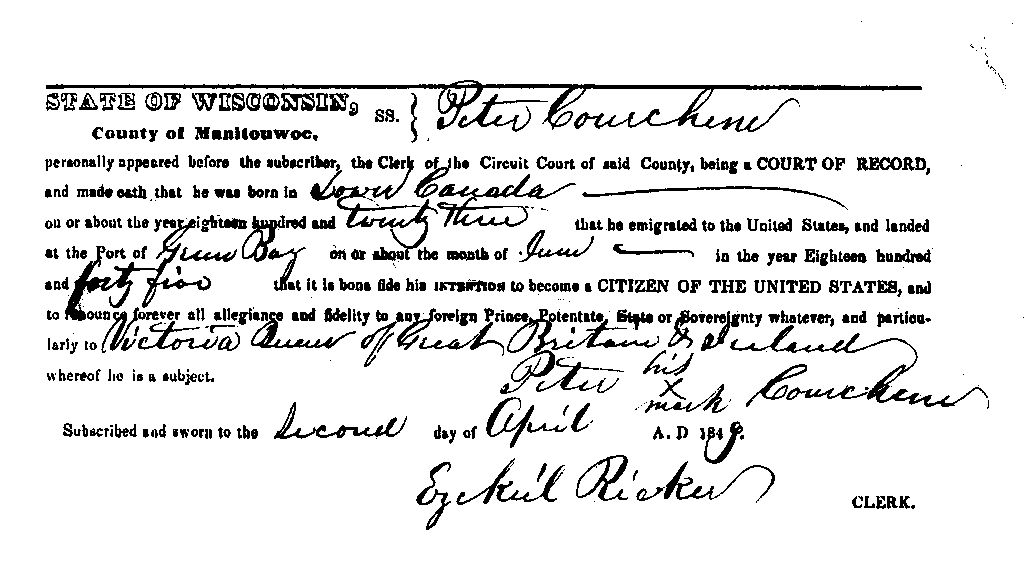 STATE OF WISCONSIN, SS. } Peter Courchene
County of Manitouwoc.
personally appeared before the subscriber, the Clerk of the Circuit Court of said County, being a COURT OF RECORD,
and made oath that he was born in Lower Canada
on or about the year eighteen hundred and twenty three that he emigrated to the United States, and landed
at the Port of Green Bay on or about the month of June in the year Eighteen hundred
and forty five that it is bona fide his INTENTION to become a CITIZEN OF THE UNITED STATES, and
to renounce forever all allegiance and fidelity to any foreign Prince, Potentate, State or Sovereignty whatever, and particu-
larly to Victoria Queen of Great Britain & Ireland
whereof he is a subject. Peter his x mark Courchene
Subscribed and sworn to the second day of April A. D 1849.
Ezekiel Ricker
CLERK.